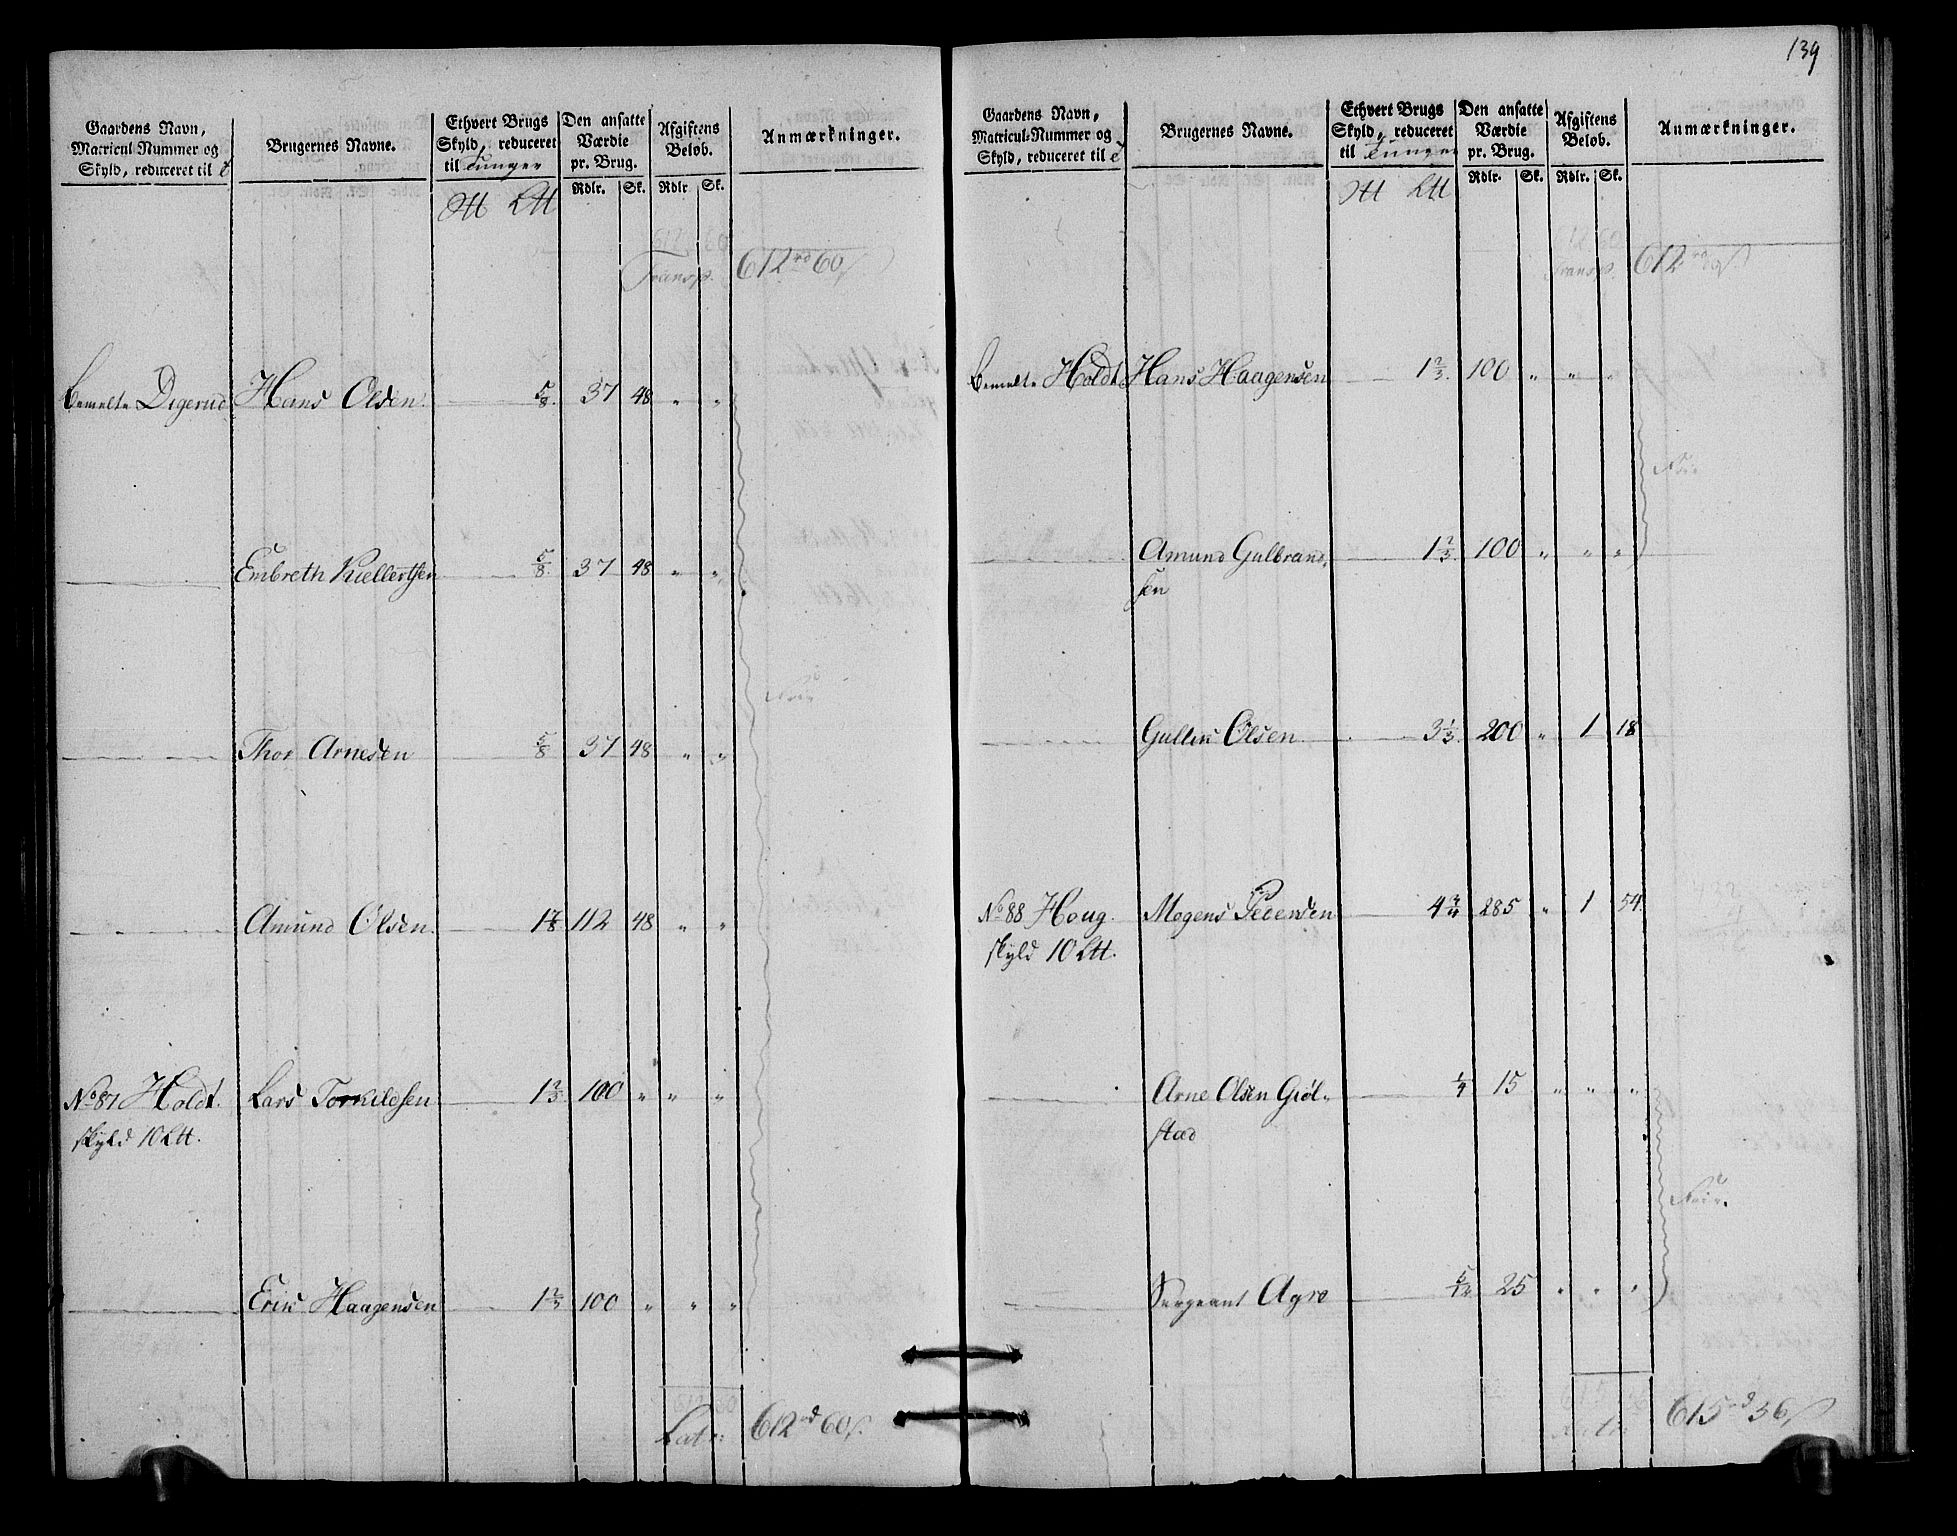 139
Gaardens Navn, Matricul-Nummer og Skyld, reduceret til
Brugernes Navne.
Ethvert Brugs Skyld, reduceret til Tunger
Den ansatte Værdie pr. Brug.
Afgiftens Beløb.
Anmærkninger.
Rdlr. Sk. Rdlr. Sk.
Transp. 612 rd 60
bemelte Digerud Hans Olsen. 5/8. 37 48 " "
Embreth Kiellertsen 5/8. 37 48 " "
Thor Arnesen 5/8 37 48 " "
Frie
Amund Olsen. 1 7/8 112 48 " "
No 87 Holdt. Lars Torkildsen 1 2/3 100 " " "
skyld 10 L℔.
Eric Haagensen 1 2/3 100 " " "
Lat. 612 rd 60 s.
Gaardens Navn, Matricul-Nummer og Skyld, reduceret til
Brugernes Navne.
Ethvert Brugs Skyld, reduceret til Tunger
Den ansatte Værdie pr. Brug.
Afgiftens Beløb.
Anmærkninger.
Rdlr. Sk. Rdlr. Sk.
Transp. 612 rd
bemelte Holdt Hans Haagensen 1 2/3. 100 " " "
Frie
Amund Gulbrand,
sen 1 2/3 100 " " "
Olsen 3 1/3. 200 " 1 18
No 88 Houg. Mogens Pedersen 4 3/4 285 " 1 54.
skyld 10 L℔.
Arne Olsen Giøl- 1/4 15 " " "
stad
Frie.
Sergeant Agre 5/12 25 " " "
Latr. 615 rd 36 s